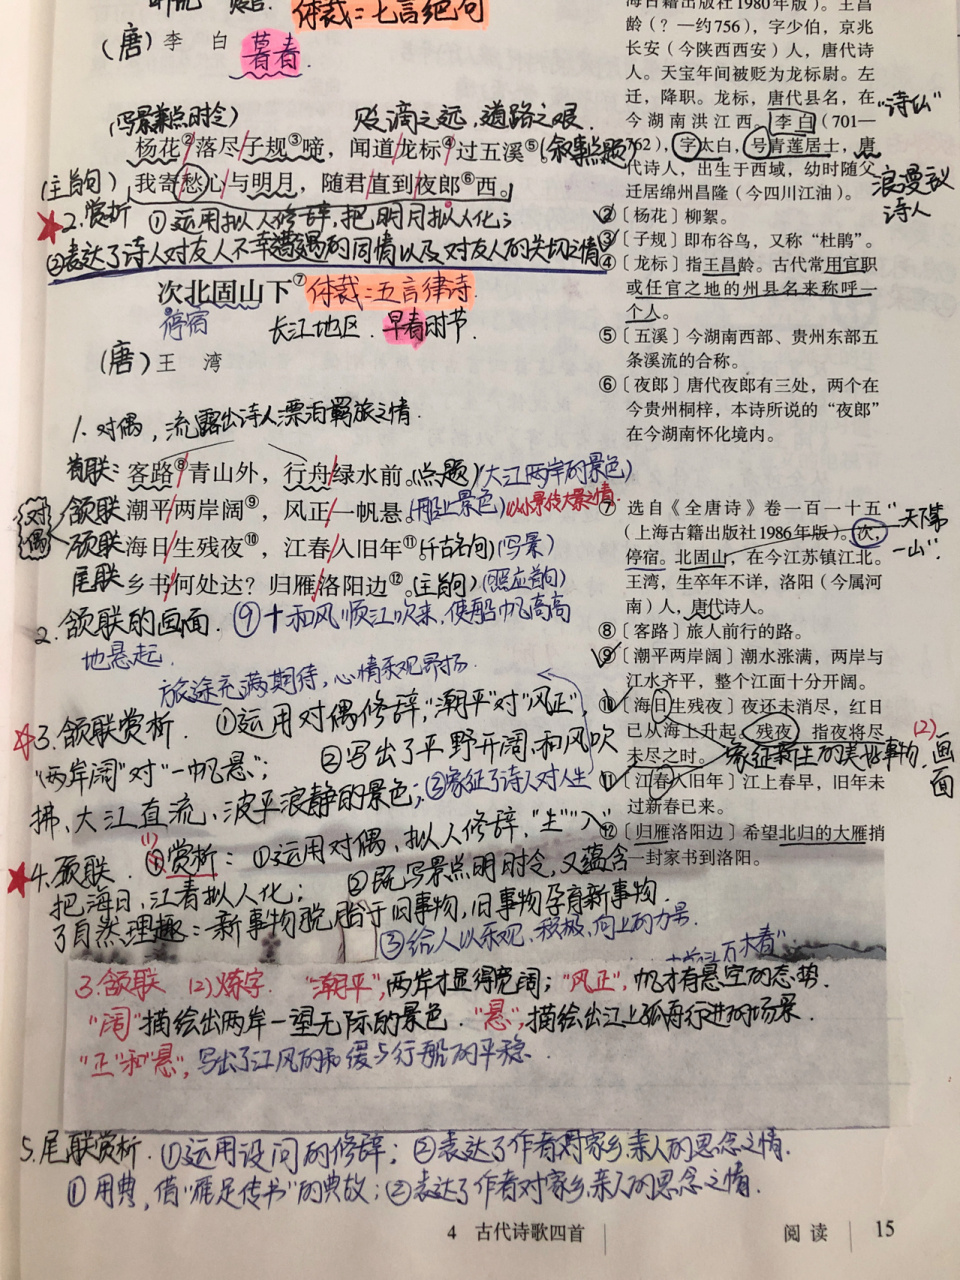 体裁=七言绝句
(唐) 李 白 暮春
(写景兼点时令) 贬谪之远，道路之艰
杨花②落尽子规③啼，闻道龙标④过五溪⑤(叙事点题)
(主旨句) 我寄愁心与明月，随君直到夜郎⑥西。
2.赏析 ①运用拟人修辞，把明月拟人化；
②表达了诗人对友人不幸遭遇的同情以及对友人的关切之情
次北固山下⑦ 体裁=五言律诗
停宿 长江地区 早春时节
(唐) 王 湾
1.对偶，流露出诗人漂泊羁旅之情
首联：客路⑧青山外，行舟绿水前。(点题)(大江两岸的景色)
对偶
颔联 潮平两岸阔⑨，风正一帆悬。(船上景色)以小景传大景之情
颈联 海日生残夜⑩，江春入旧年⑪(千古名句)(写景)
尾联 乡书何处达？归雁洛阳边⑫。(主旨句)(照应首句)
2.颔联的画面 和风顺江吹来，使船帆高高
地悬起
旅途充满期待，心情乐观昂扬
3.颔联赏析 ①运用对偶修辞，“潮平”对“风正”
“两岸阔”对“一帆悬”； ②写出了平野开阔，和风吹
拂、大江直流、波平浪静的景色；③象征了诗人对人生
4.颈联 (1)赏析：①运用对偶、拟人修辞，“生”“入”
把海日、江春拟人化； ②既写景点明时令，又蕴含
了自然理趣：新事物脱胎于旧事物，旧事物孕育新事物
③给人以乐观、积极、向上的力量
万木春”
3.颔联 (2)炼字 “潮平”，两岸才显得宽阔；“风正”，帆才有悬空的态势
“阔”描绘出两岸一望无际的景色，“悬”，描绘出江上孤舟行进的场景
“正”和“悬”，写出了江风的和缓与行船的平稳
5.尾联赏析 ①运用设问的修辞；②表达了作者对家乡、亲人的思念之情
①用典，借“雁足传书”的典故；②表达了作者对家乡、亲人的思念之情
海古籍出版社1980年版）。王昌
龄（？—约756），字少伯，京兆
长安（今陕西西安）人，唐代诗
人。天宝年间被贬为龙标尉。左
迁，降职。龙标，唐代县名，在
今湖南洪江西。李白（701—
762），字太白，号青莲居士，唐
代诗人，出生于西域，幼时随父
迁居绵州昌隆（今四川江油）。
“诗仙”
浪漫主义
诗人
②〔杨花〕柳絮。
③〔子规〕即布谷鸟，又称“杜鹃”。
④〔龙标〕指王昌龄。古代常用官职
或任官之地的州县名来称呼一
个人。
⑤〔五溪〕今湖南西部、贵州东部五
条溪流的合称。
⑥〔夜郎〕唐代夜郎有三处，两个在
今贵州桐梓，本诗所说的“夜郎”
在今湖南怀化境内。
⑦ 选自《全唐诗》卷一百一十五
（上海古籍出版社1986年版）。次，
停宿。北固山，在今江苏镇江北。
王湾，生卒年不详，洛阳（今属河
南）人，唐代诗人。
“天下第
一山”
⑧〔客路〕旅人前行的路。
⑨〔潮平两岸阔〕潮水涨满，两岸与
江水齐平，整个江面十分开阔。
⑩〔海日生残夜〕夜还未消尽，红日
已从海上升起。残夜，指夜将尽
未尽之时。 象征新生的美好事物
(2)画面
⑪〔江春入旧年〕江上春早，旧年未
过新春已来。
⑫〔归雁洛阳边〕希望北归的大雁捎
一封家书到洛阳。
4 古代诗歌四首
阅读 15